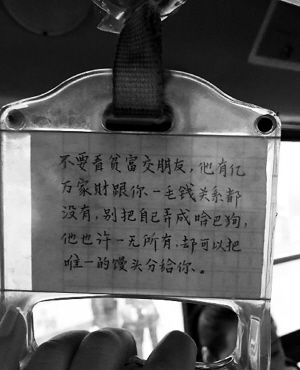 不要看贫富交朋友，他有亿
万家财跟你一毛钱关系都
没有，别把自己弄成哈巴狗，
他也许一无所有，却可以把
唯一的馒头分给你。